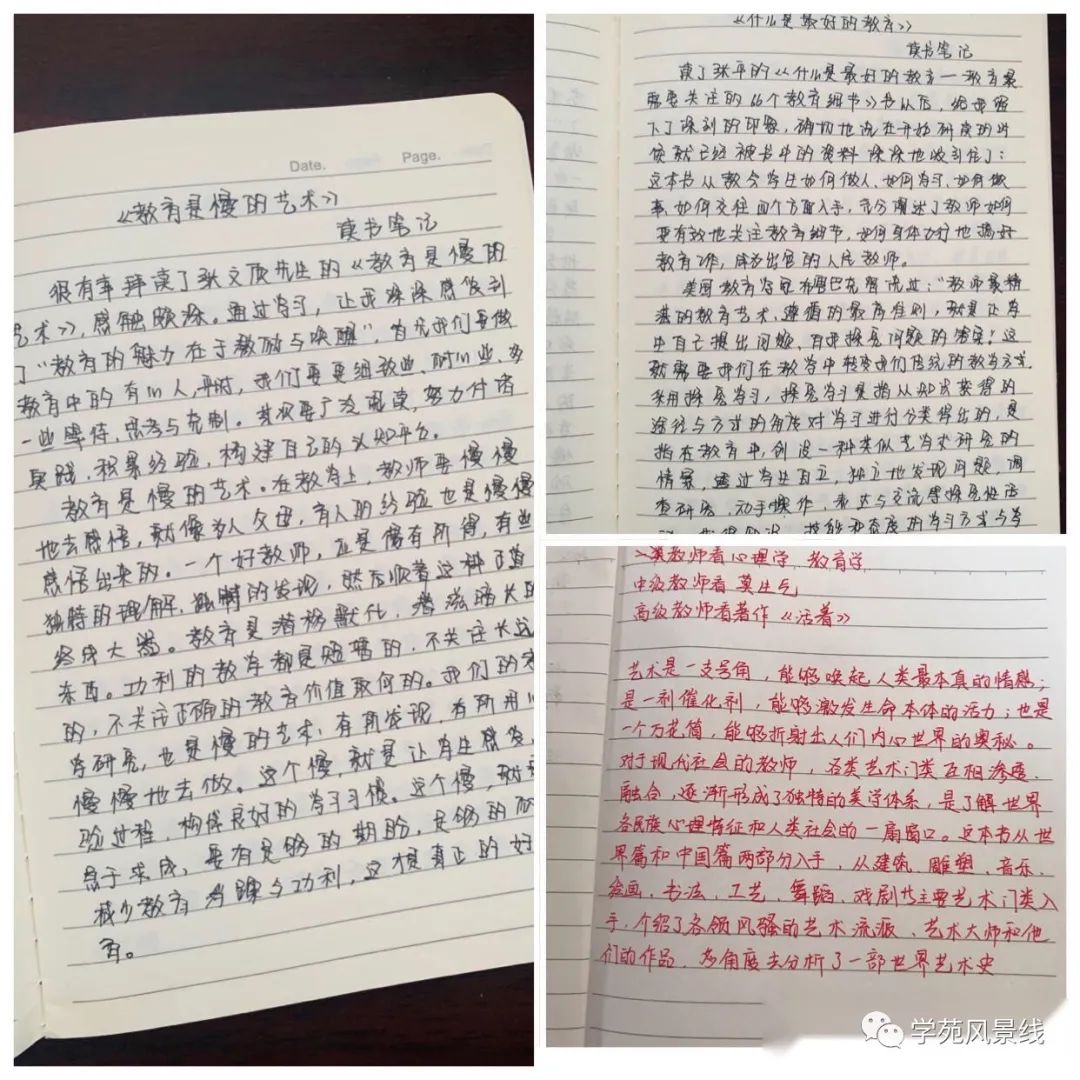 Date.
Page.
《教育是慢的艺术》
读书笔记
很有幸拜读了张文质先生的《教育是慢的
艺术》，感触颇深。通过学习，让我深深感受到
了"教育的魅力在于激励与唤醒"，首先我们要做
教育中的有心人，平时，我们要更细致些、耐心些、多
一些等待、思考与克制。其次要广泛阅读，努力付诸
实践，积累经验，构建自己的认知平台。
教育是慢的艺术。在教育上，教师要慢慢
地去感悟，就像为人父母，育人的经验也是慢慢
感悟出来的。一个好教师，正是偶有所得，有些
独特的理解、独特的发现，然后顺着这种
终成大器。教育是潜移默化，潜滋暗长的
东西。功利的教育都是短暂的，不关注长远
的，不关注正确的教育价值取向的。我们的
学研究，也是慢的艺术，有所发现，有所用心
慢慢地去做。这个慢，就是让学生感受
验过程，构成良好的学习习惯。这个慢，就
急于求成，要有足够的期盼，足够的耐
减少教育 与功利，这根真正的好
育。
《什么是最好的教育》
读书笔记
读了张平的《什么是最好的教育—教育最
需要关注的66个教育细节》书以后，给我留
下了深刻的印象，确切地说在开始研读的时
候就已经被书中的资料深深地吸引住了：
这本书从教会学生如何做人、如何学习、如何做
事、如何交往四个方面入手，充分阐述了教师如何
要有效地关注教育细节，如何身体力行地搞好
教育工作，成为出色的人民教师。
美国教育学家布鲁巴克曾说过："教师最精
湛的教育艺术，遵循的最高准则，就是让学
生自己提出问题、自己探究问题的答案！这
就需要我们在教学中转变我们传统的教学方式
采用探究学习，探究学习是指从知识获得的
途径与方式的角度对学习进行分类得出的，是
指在教育中，创设一种类似学术研究的
情景，通过学生自立、独立地发现问题，调
查研究，动手操作，表达与交流等探究性活
动，获得知识、技能和态度的学习方式与学
类教师看心理学、教育学
中级教师看莫生气
高级教师看著作《活着》
艺术是一支号角，能够唤起人类最本真的情感；
是一剂催化剂，能够激发生命本体的活力；也是
一个万花筒，能够折射出人们内心世界的奥秘。
对于现代社会的教师，各类艺术门类互相渗透、
融合，逐渐形成了独特的美学体系，是了解世界
各民族心理特征和人类社会的一扇窗口。这本书从世
界篇和中国篇两部分入手，从建筑、雕塑、音乐、
绘画、书法、工艺、舞蹈、戏剧等主要艺术门类入
手，介绍了各领风骚的艺术流派、艺术大师和他
们的作品，多角度去分析了一部世界艺术史
学苑风景线